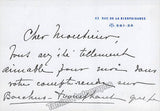 27, RUE DE LA BIENFAISANCE
Cher Monsieur,
Vous avez été tellement
aimable pour moi dans
votre compte rendu sur
Bacchus triomphant que